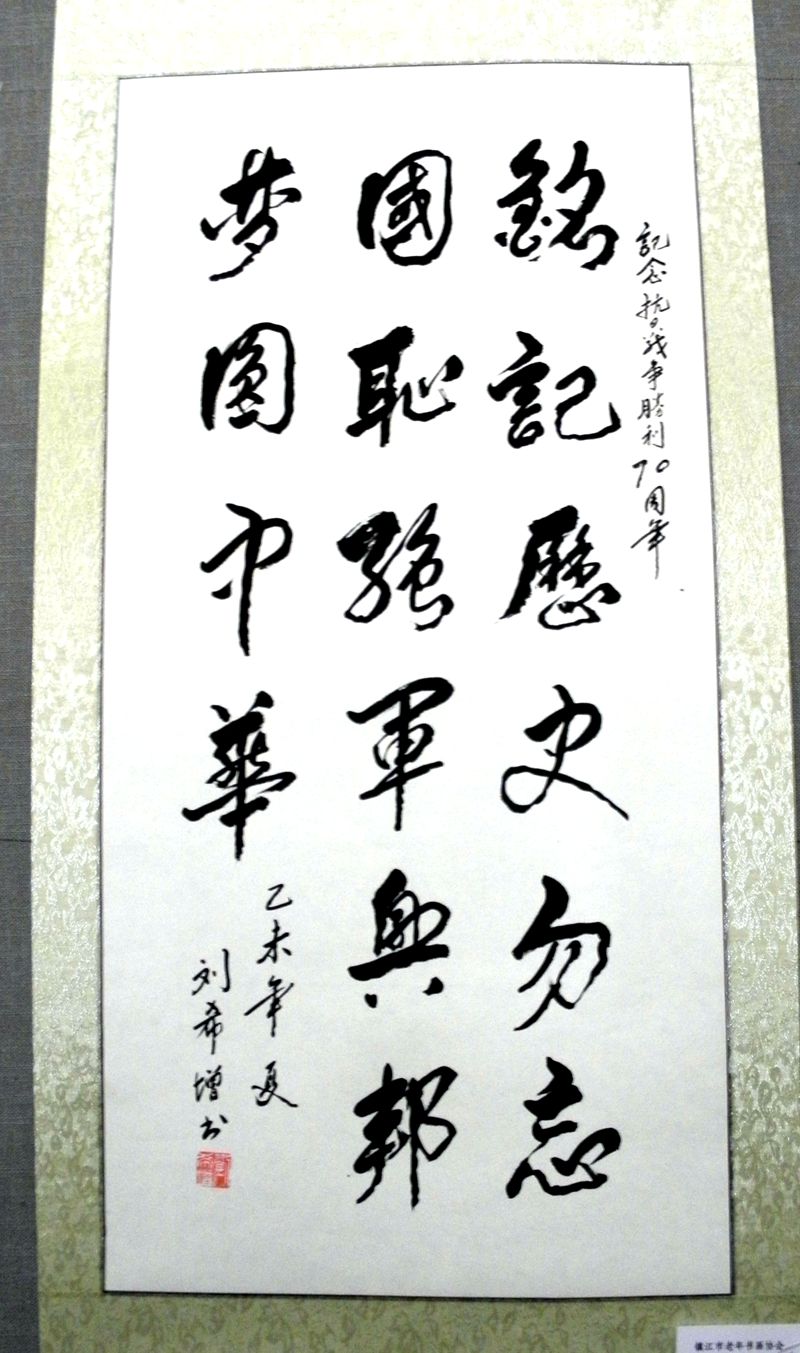 記念抗日战争勝利70周年
銘記歷史勿忘
國恥強軍興邦
梦圆中華
乙未年夏
刘希增书
镇江市老年书画协会